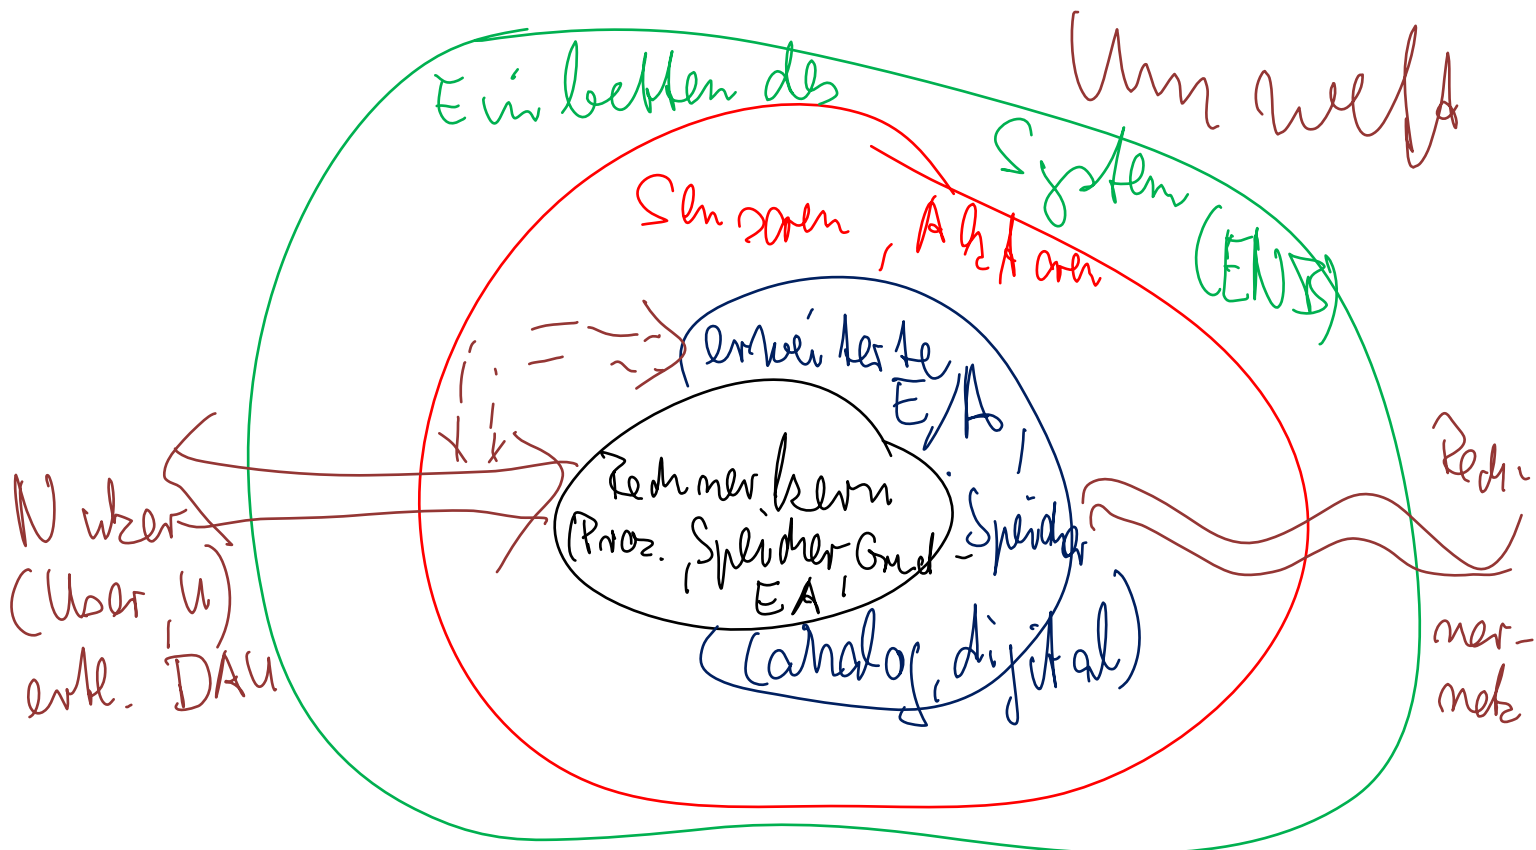 Umwelt
Einbettendes
System
(ENS)
Sensoren, Aktoren
erweiterte
E/A,
Speicher
(analog, digital)
Rechnerkern
(Proz., Speicher, Grund-
EA)
Nutzer
(User, U)
evtl. DAU
Rech-
ner-
netz